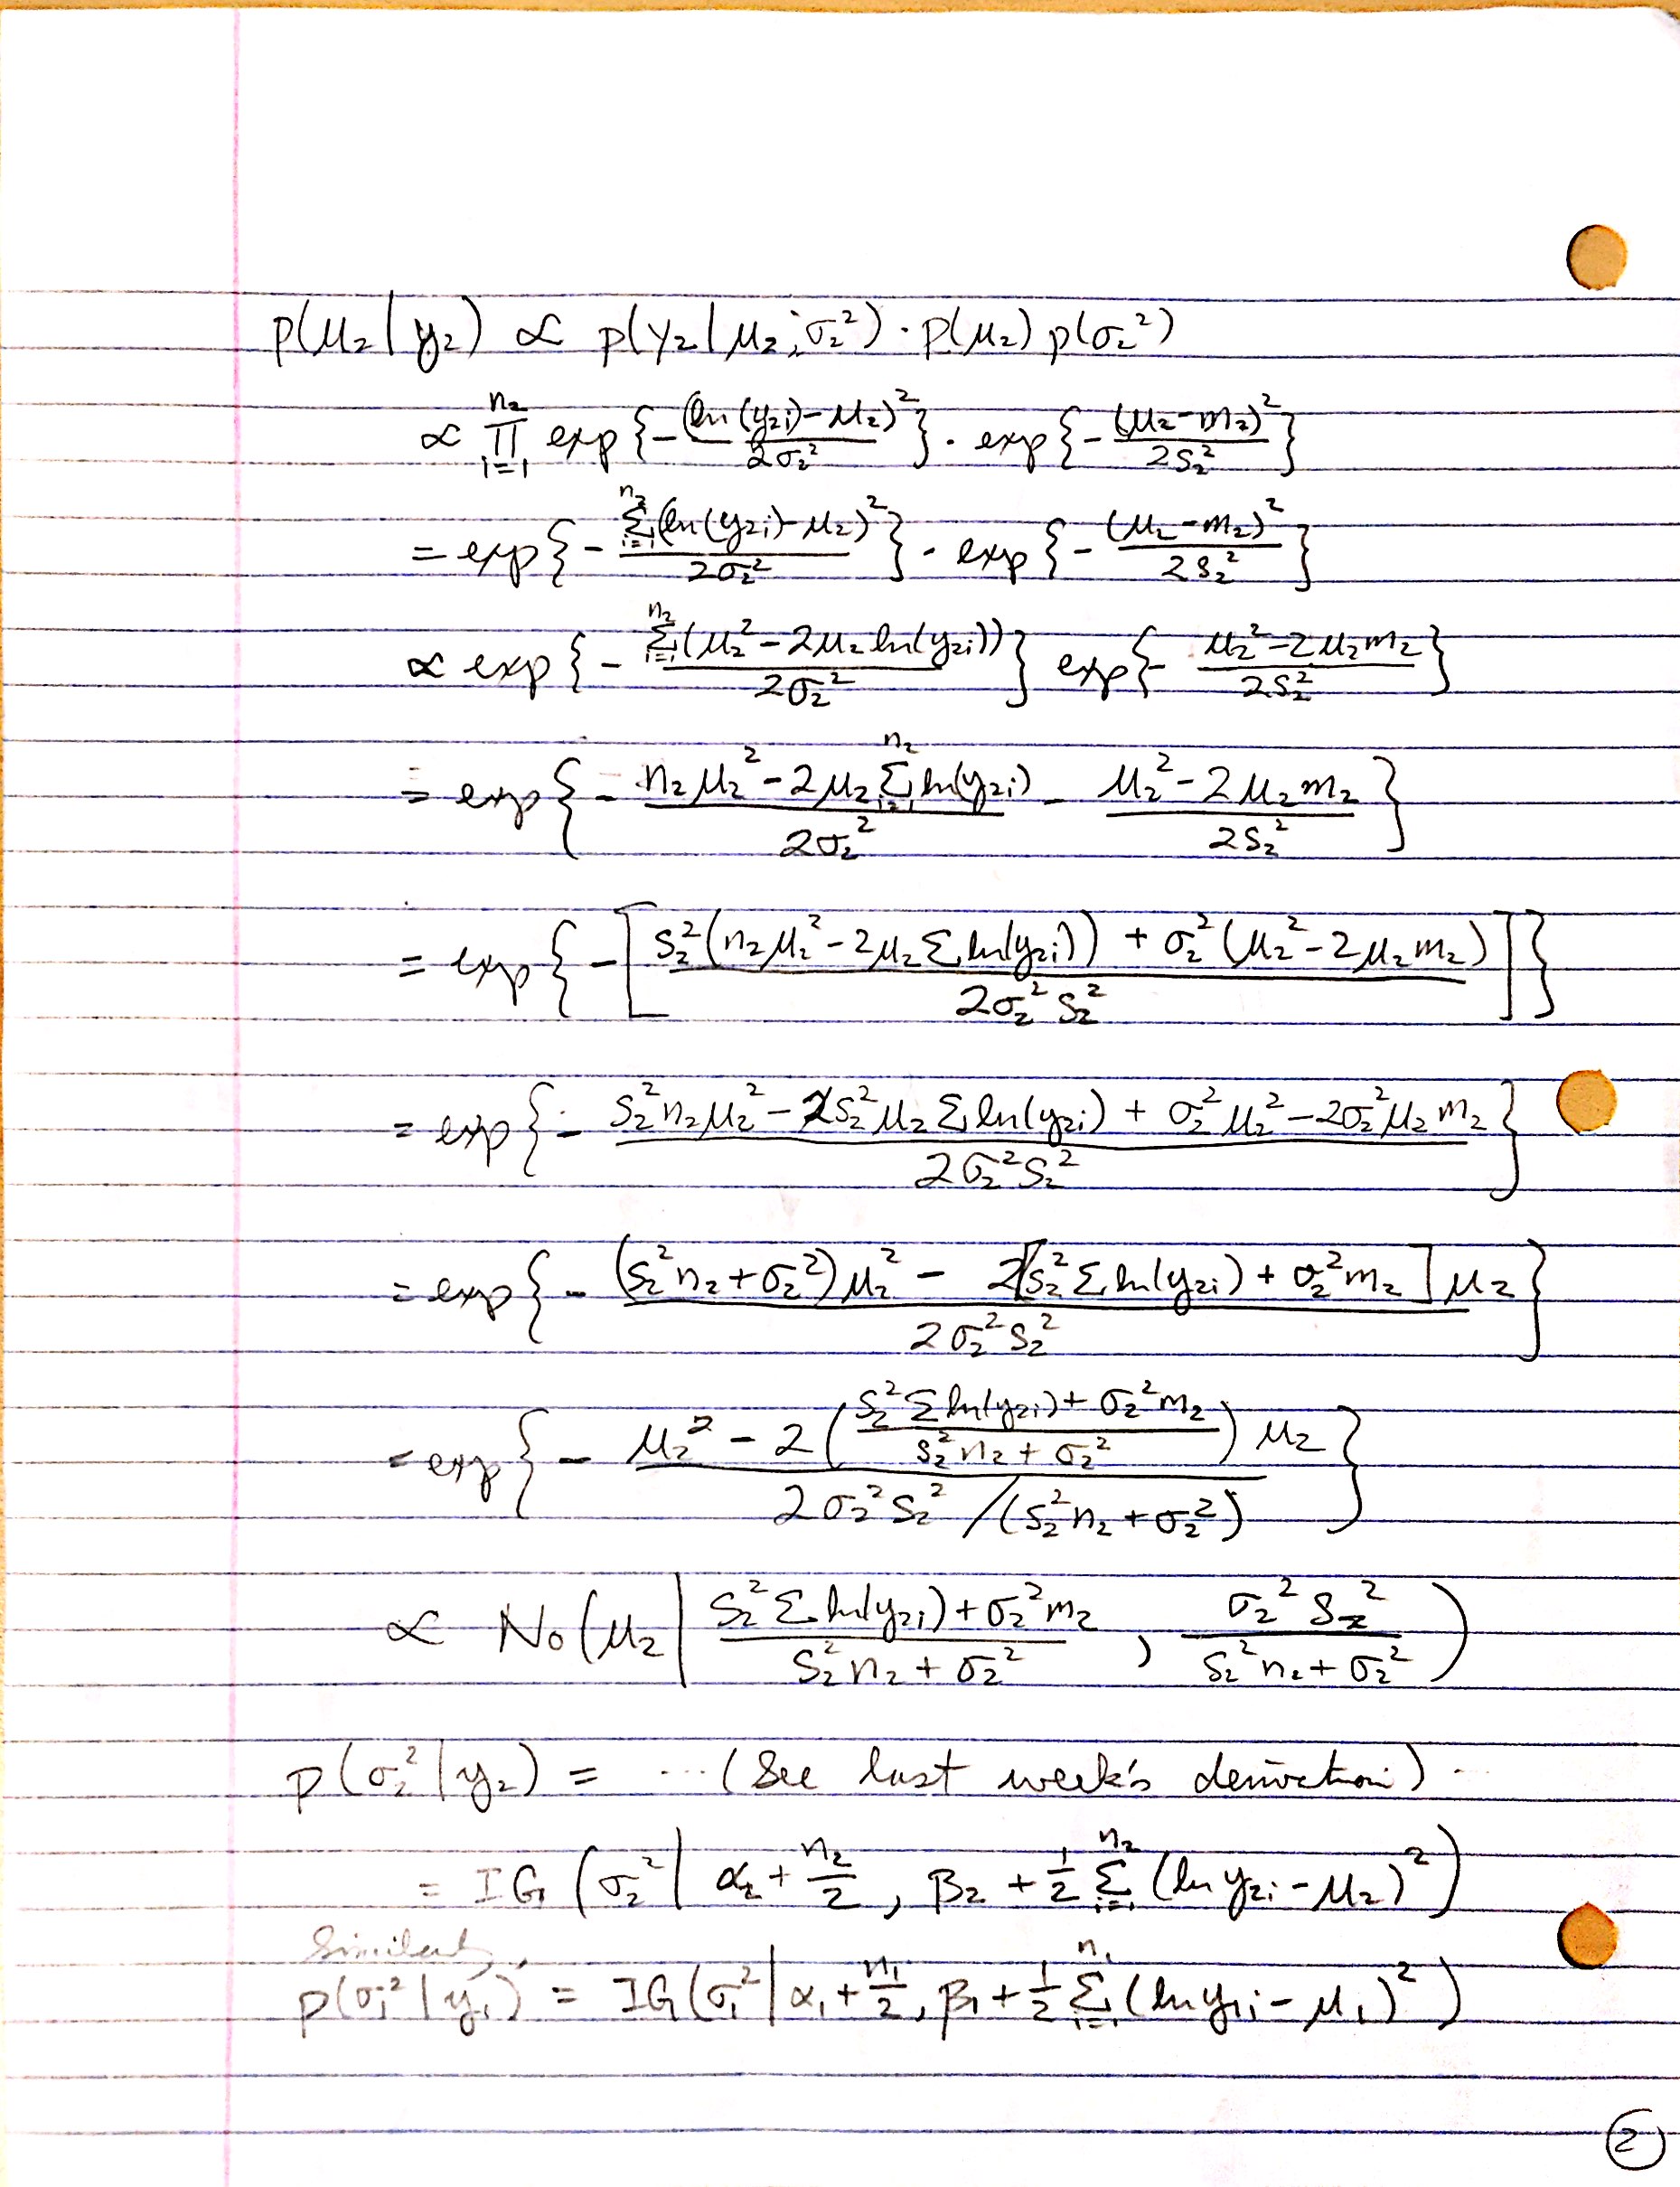 p(μ₂|y₂) ∝ p(y₂|μ₂;σ₂²)·p(μ₂)p(σ₂²)
∝ ∏_{i=1}^{n₂} exp{-(ln(y₂ᵢ)-μ₂)²/2σ₂²}·exp{-(μ₂-m₂)²/2s₂²}
= exp{-∑_{i=1}^{n₂}(ln(y₂ᵢ)-μ₂)²/2σ₂²}·exp{-(μ₂-m₂)²/2s₂²}
∝ exp{-∑_{i=1}^{n₂}(μ₂²-2μ₂ln(y₂ᵢ))/2σ₂²} exp{-(μ₂²-2μ₂m₂)/2s₂²}
= exp{-(n₂μ₂²-2μ₂∑_{i=1}^{n₂}ln(y₂ᵢ))/2σ₂² - (μ₂²-2μ₂m₂)/2s₂²}
= exp{-[(s₂²(n₂μ₂²-2μ₂∑ln(y₂ᵢ)) + σ₂²(μ₂²-2μ₂m₂))/2σ₂²s₂²]}
= exp{-(s₂²n₂μ₂²-2s₂²μ₂∑ln(y₂ᵢ) + σ₂²μ₂²-2σ₂²μ₂m₂)/2σ₂²s₂²}
= exp{-((s₂²n₂+σ₂²)μ₂² - 2[s₂²∑ln(y₂ᵢ) + σ₂²m₂]μ₂)/2σ₂²s₂²}
= exp{-(μ₂² - 2((s₂²∑ln(y₂ᵢ)+σ₂²m₂)/(s₂²n₂+σ₂²))μ₂)/(2σ₂²s₂²/(s₂²n₂+σ₂²))}
∝ No(μ₂|(s₂²∑ln(y₂ᵢ)+σ₂²m₂)/(s₂²n₂+σ₂²), σ₂²s₂²/(s₂²n₂+σ₂²))
p(σ₂²|y₂) = ...(See last week's derivation).
= IG(σ₂²|α₂+n₂/2, β₂+½∑_{i=1}^{n₂}(ln y₂ᵢ-μ₂)²)
Similarly,
p(σ₁²|y₁) = IG(σ₁²|α₁+n₁/2, β₁+½∑_{i=1}^{n₁}(ln y₁ᵢ-μ₁)²)
2